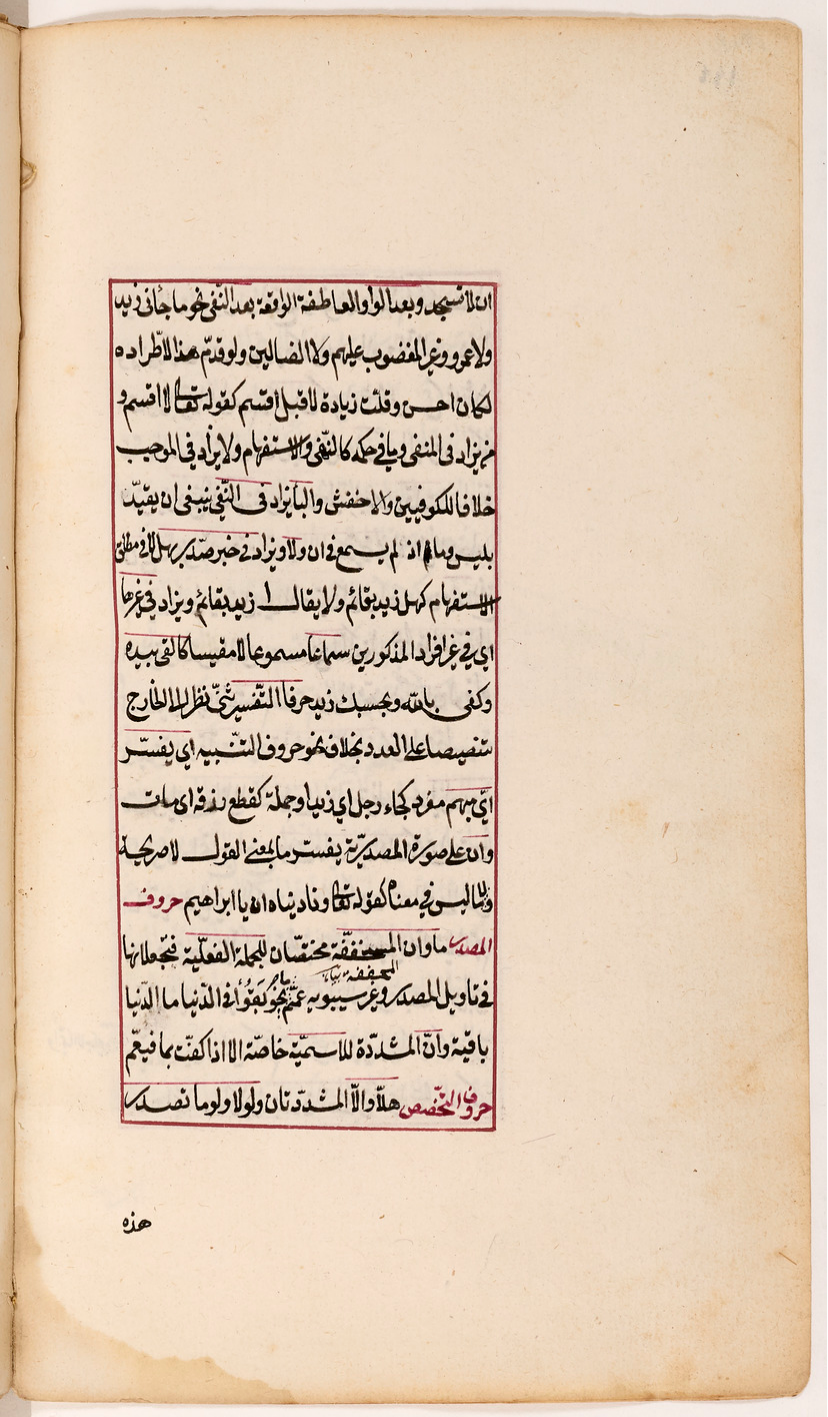 ان لا تسجد وبعد الواو العاطفة الواقعة بعد النّفى نحو ما جائى زيد
ولا عمرو وغير المغضوب عليهم ولا الضالين ولو قدّم هذا لاطّراده
لكان احسن وقلّت زيادة لا قبل اقسم كقوله تعالى لا اقسم و
من يزاد فى المنفى وما فى حكمه كالنّهى والاستفهام ولا يزاد فى الموجب
خلافا للكوفيين والاخفش والباء يزاد فى النّفى ينبغى ان يقيّد
بليس وما اذ لم يسمع فى ان ولا ويزاد فى خبر صدّر بهل لا فى مطلق
الاستفهام كهل زيد بقائم ولا يقال ا زيد بقائم ويزاد فى غيرها
اى فى غير افراد المذكورين سماعا مسموعا لا مقيسا كالقى بيده
وكفى بالله وبحسبك زيد حرفا التّفسير ثنّى نظرا الى الخارج
تنصيصا على العدد بخلاف نحو حروف التّنبيه اى يفسّر
اىّ مبهم مفرد كجاء رجل اى زيد او جملة كقطع رزقه اى مات
وان على صورة المصدريّة يفسّر ما بمعنى القول لا صريحة
ولا ما ليس فى معناه كقوله تعالى وناديناه ان يا ابراهيم حروف
المصدر ما وان المخففّة مختصّان للجملة الفعليّة فتجعلانها
المخففة
فى تاويل المصدر وغير سيبويه عمّم نحو بقوا فى الدّنيا ما الدّنيا
باقية وانّ المشدّدة للاسميّة خاصّة الا اذا كفّت بما فيعمّ
حروف التّحضيض هلّا والّا المشدّدتان ولولا ولو ما تصدر
هذه